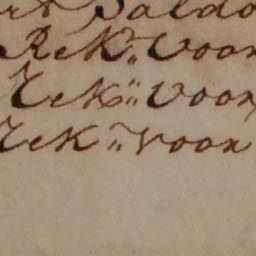 rt Saldo
Rek.. Voor
Rek.. Voor
Rek.. voor